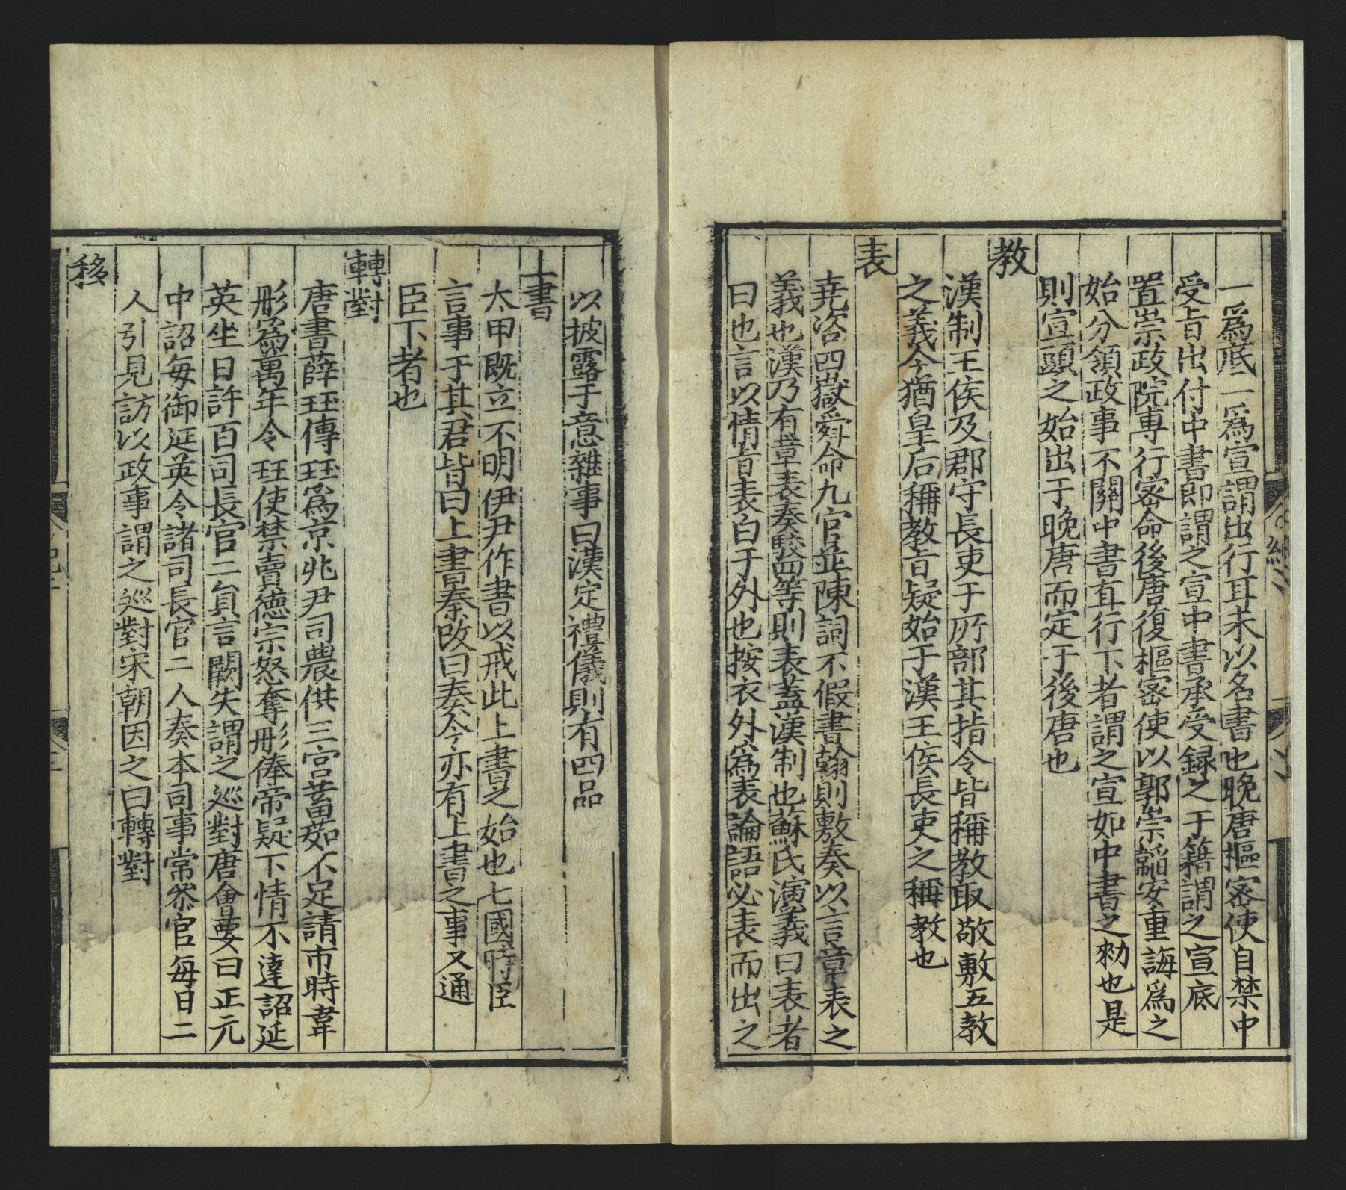 一爲底一爲宣謂出行耳未以名書也晚唐樞密使自禁中
受旨出付中書即謂之宣中書承受録之于籍謂之宣底
置崇政院專行密命後唐復樞密使以郭崇韜安重誨爲之
始分領政事不關中書直行下者謂之宣如中書之勑也是
則宣頭之始出于晚唐而定于後唐也
教
漢制王侯及郡守長吏于所部其指令皆稱教取敬敷五教
之義今猶皇后稱教旨疑始于漢王侯長吏之稱教也
表
堯洽四嶽舜命九官並陳詞不假書翰則敷奏以言章表之
義也漢乃有章表奏駮四等則表蓋漢制也蘇氏演義曰表者
曰也言以情旨表白于外也按衣外爲表論語必表而出之
以披露于意雜事曰漢定禮儀則有四品
上書
太甲既立不明伊尹作書以戒此上書之始也七國時臣
言事于其君皆曰上書秦改曰奏今亦有上書之事又通
臣下者也
轉對
唐書薛珏傳珏爲京兆尹司農供三宫畜茹不足請市時韋
彤爲萬年令珏使禁賣德宗怒奪彤俸帝疑下情不達詔延
英坐日許百司長官二員言闕失謂之巡對唐會要曰正元
中詔每御延英令諸司長官二人奏本司事常叅官每日二
人引見訪以政事謂之巡對宋朝因之曰轉對
移